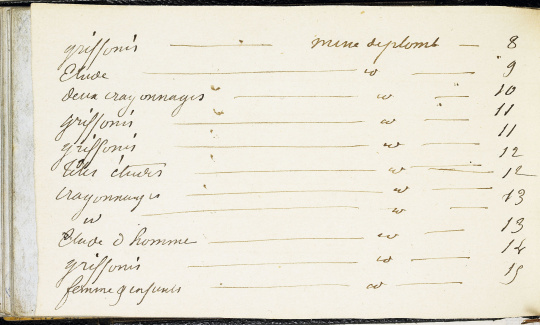 griffonis — mine deplomb — 8
Etude — id — 9
deux crayonnages — id — 10
griffonis — id — 11
griffonis — id — 11
têtes études — id — 12
crayonnages — id — 12
id — id — 13
Etude d homme — id — 13
griffonis — id — 14
femme & enfants — id — 15